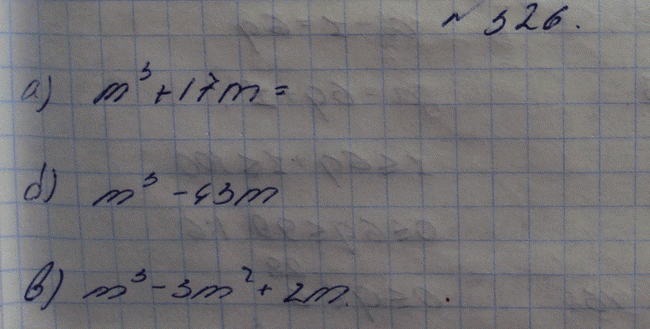 N 326.
а) m³ + 17m =
б) m³ - 43m
в) m³ - 3m² + 2m.